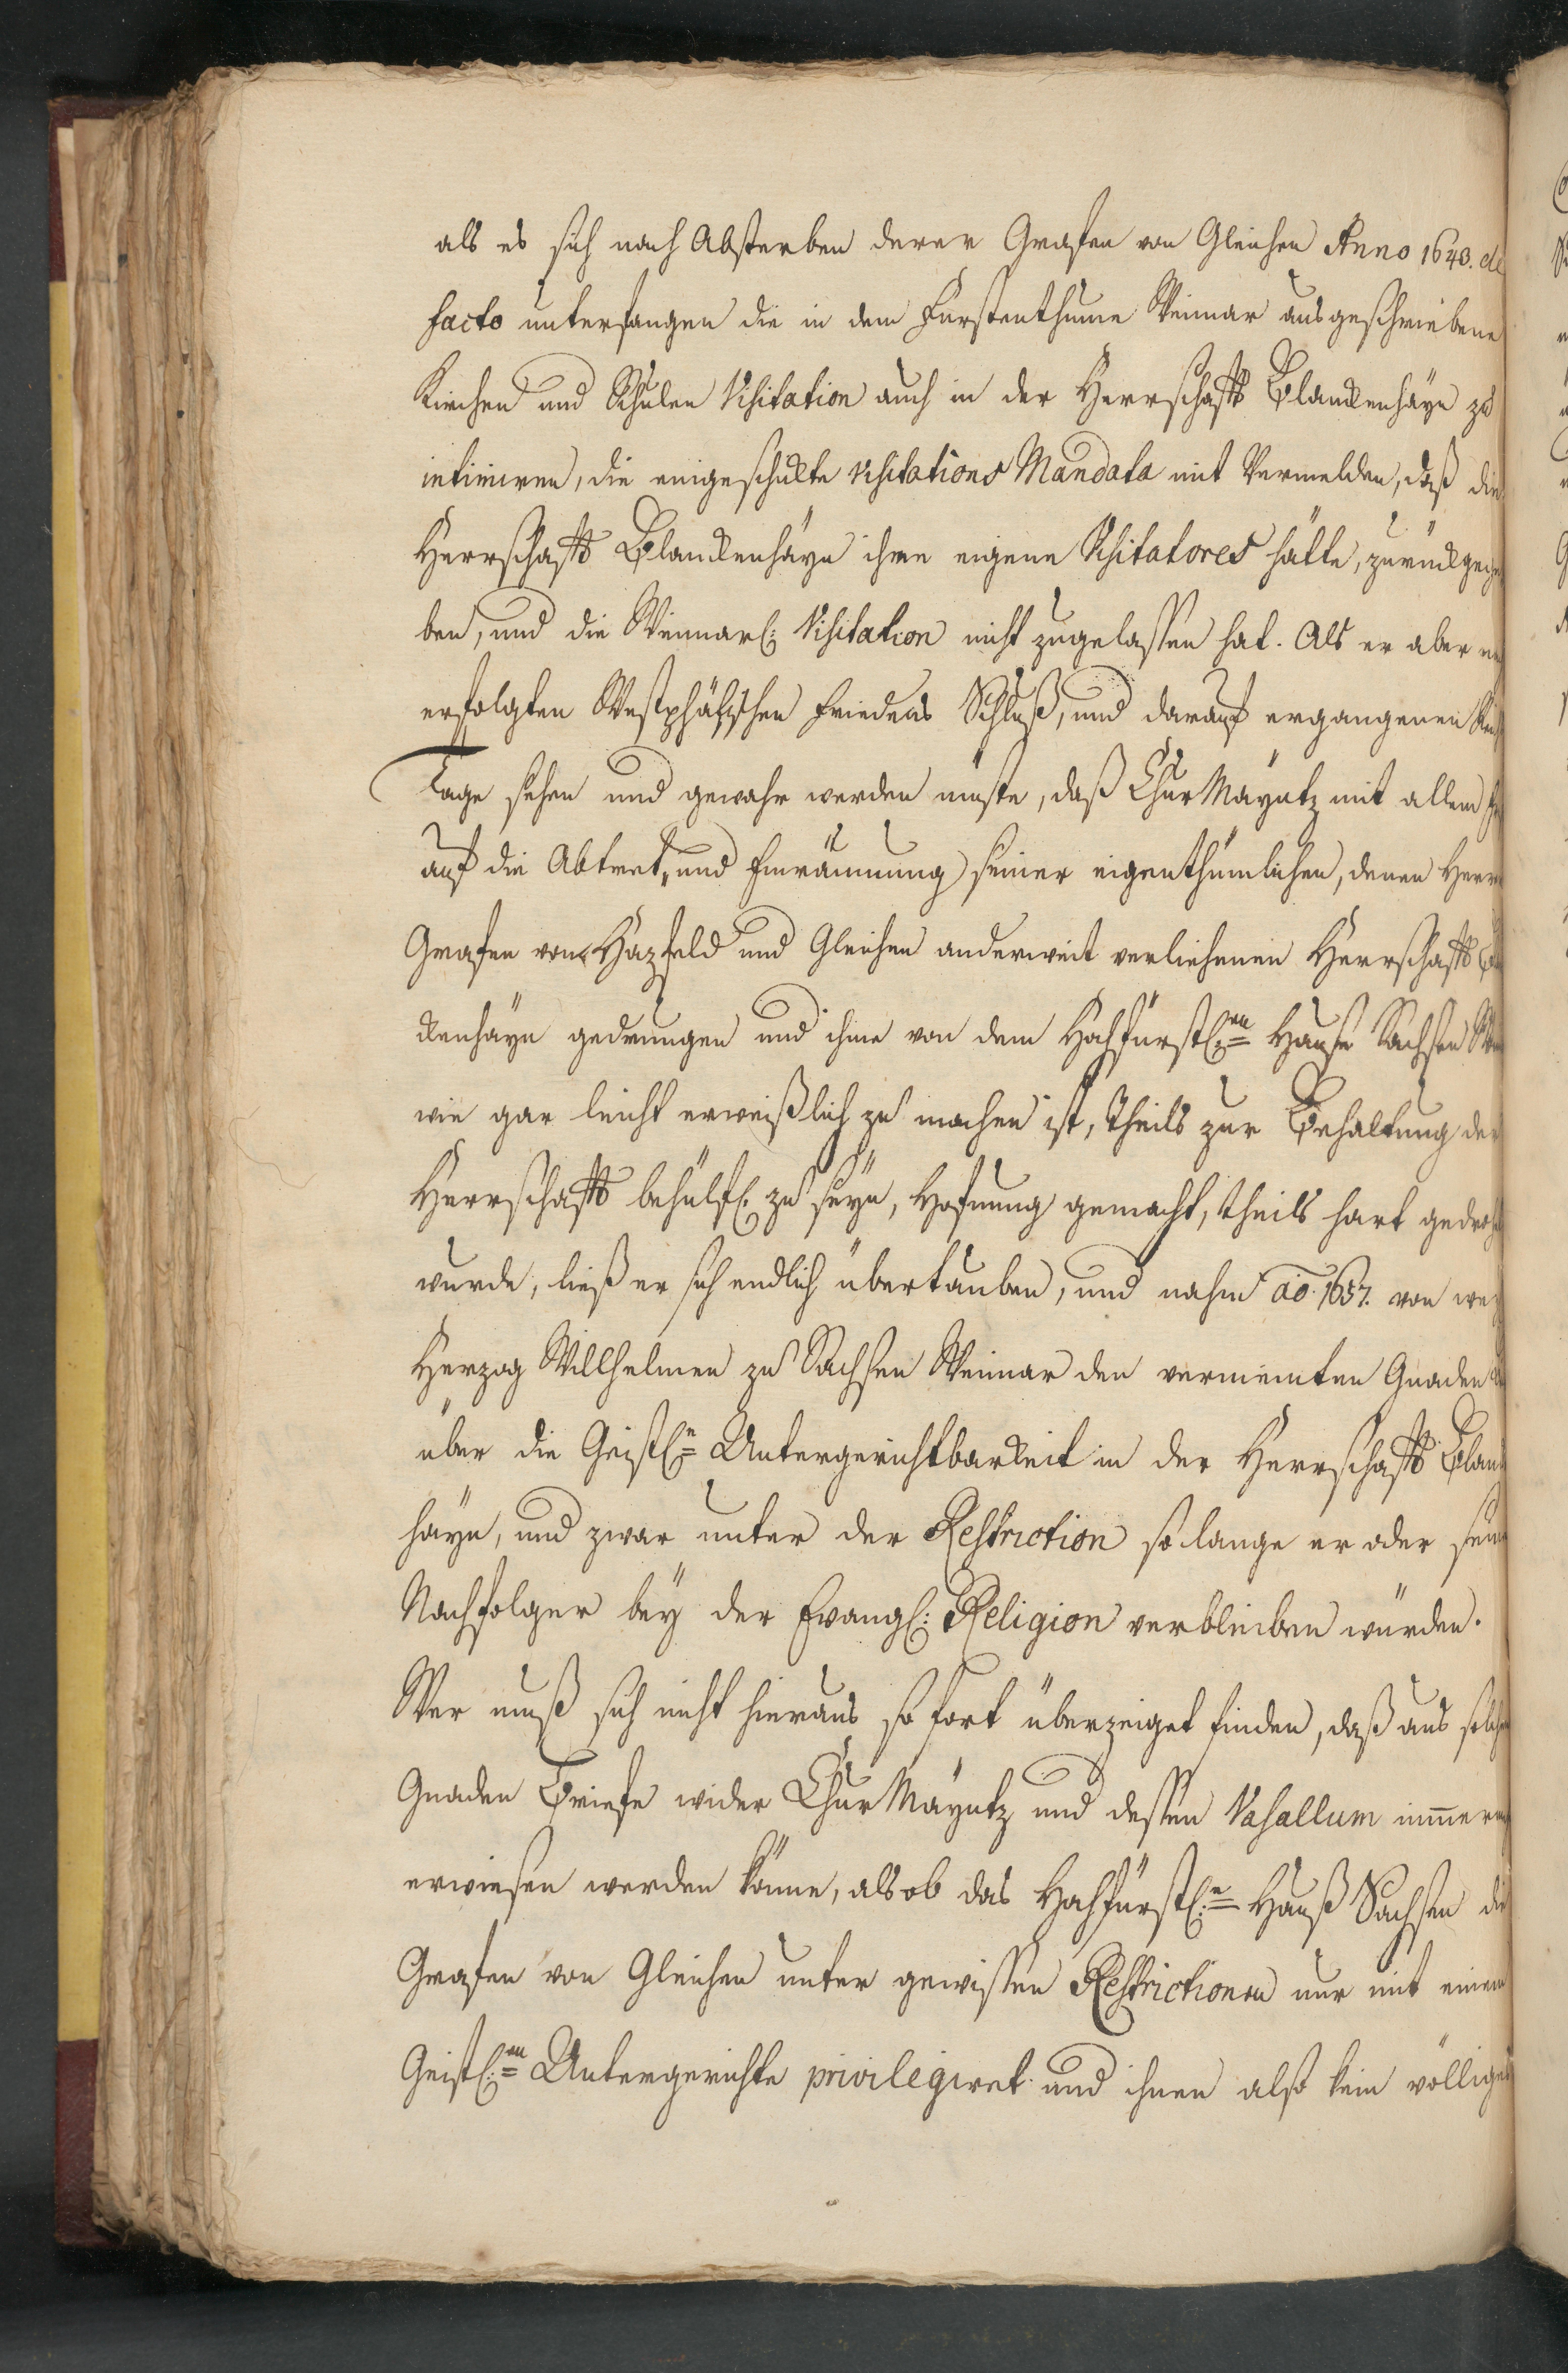 als es sich nach Absterben derer Grafen von Gleichen Anno 1640. de
facto unterfangen die in dem Fürstenthume Weimar ausgeschriebene
Kirchen und Schulen Visitation auch in der Herrschafft Blanckenhäyn zu
intimiren, die eingeschickte Visitations Mandata mit Vermelden, daß die
Herrschafft Blanckenhäyn ihre eigene Visitatores hätte, zurückgege
ben, und die Weimarl: Visitation nicht zugelassen hat. Als er aber
erfolgten Westphälischen Friedens Schluß, und darauf ergangenen
Tage sehen und gewahr werden muste, daß Chur Mäyntz mit allem
auf die Abtret- und Einräumung seiner eigenthümlichen, denen Herrn
Grafen von Hazfeld und Gleichen anderweit verliehenen Herrschafft
ckenhäyn gedrungen und ihme von dem Hochfürstl:en Hause Sachsen
wie gar leicht erweißlich zu machen ist, theils zur Behaltung der
Herrschafft behülfl. zu seyn, Hofnung gemacht, theils hart gedrohet
wurde, ließ er sich endlich übertauben, und nahm ao. 1657. von
Herzog Willhelmen zu Sachsen Weimar den vermeinten Gnaden
über die Geistl:e Untergerichtbarkeit in der Herrschafft Blanck
häyn, und zwar unter der Restriction so lange er oder seine
Nachfolger bey der Evangl: Religion verbleiben würden.
Wer muß sich nicht hieraus so fort überzeiget finden, daß aus solchen
Gnaden Briefe wider Chur Mäyntz und dessen Vasallum immermehr
erwiesen werden könne, als ob das Hochfürstl:e Hauß Sachsen die
Grafen von Gleichen unter gewissen Restrictionen nur mit einem
Geistl:en Untergerichte privilegiret und ihnen also kein völliges